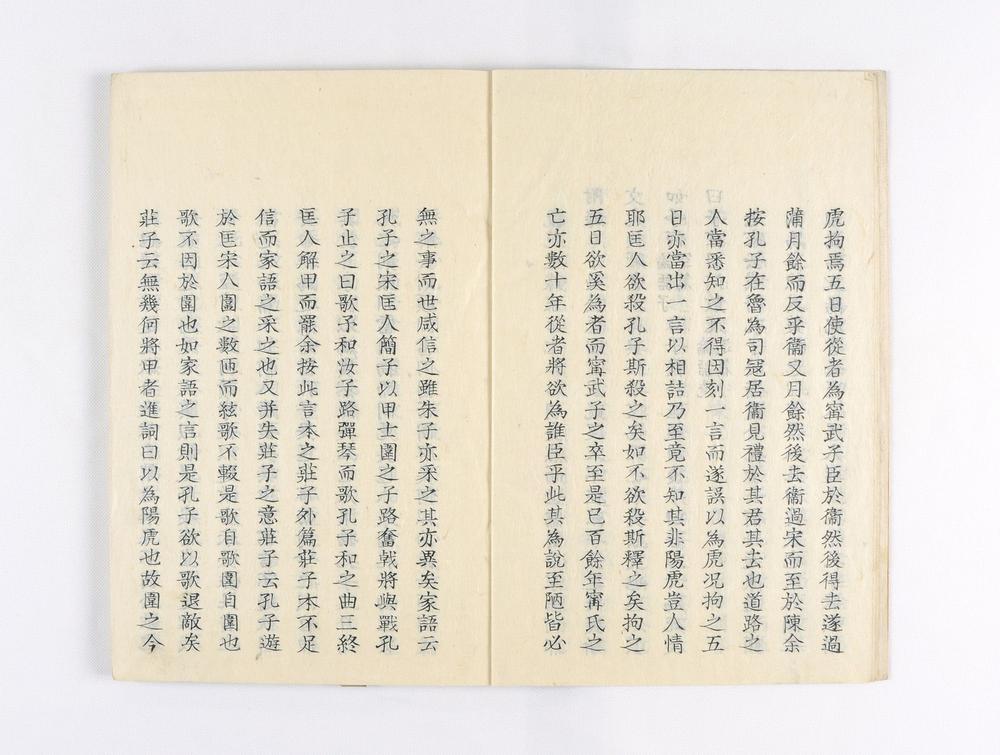 虎拘焉五日使從者為甯武子臣於衞然後得去遂過
蒲月餘而反乎衞又月餘然後去衞過宋而至於陳余
按孔子在魯為司冦居衞見禮於其君其去也道路之
人當悉知之不得因刻一言而遂誤以為虎况拘之五
日亦當出一言以相詰乃至竟不知其非陽虎豈人情
耶匡人欲殺孔子斯殺之矣如不欲殺斯釋之矣拘之
五日欲奚為者而甯武子之卒至是已百餘年甯氏之
亡亦數十年從者將欲為誰臣乎此其為說至陋皆必
無之事而世咸信之雖朱子亦采之其亦異矣家語云
孔子之宋匡人簡子以甲士圍之子路奮戟將與戰孔
子止之曰歌予和汝子路彈琴而歌孔子和之曲三終
匡人解甲而罷余按此言本之莊子外篇莊子本不足
信而家語之采之也又并失莊子之意莊子云孔子遊
於匡宋人圍之數匝而絃歌不輟是歌自歌圍自圍也
歌不因於圍也如家語之言則是孔子欲以歌退敵矣
莊子云無幾何將甲者進詞曰以為陽虎也故圍之今